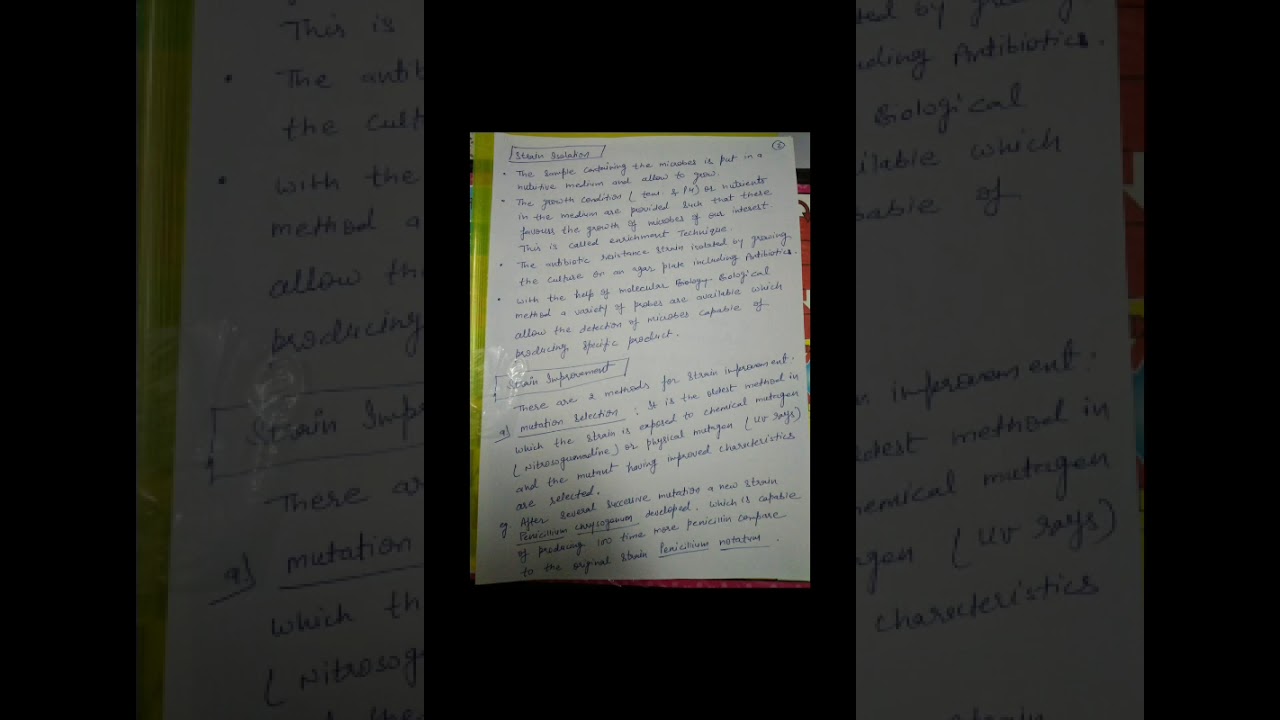 Strain Isolation
• The sample containing the microbes is put in a
nutritive medium and allow to grow.
• The growth condition ( tem. & PH) or nutrients
in the medium are provided such that these
favours the growth of microbes of our interest.
This is called enrichment Technique.
• The antibiotic resistance strain isolated by growing
the culture on an agar plate including Antibiotics.
• with the help of molecular Biology. Biological
method a variety of probes are available which
allow the detection of microbes capable of
producing specific product.
Strain Improvement
There are 2 methods for strain improvement.
a) mutation selection : It is the oldest method in
which the strain is exposed to chemical mutagen
( Nitrosoguanadine) or physical mutagen ( UV rays)
and the mutant having improved characteristics
are selected.
eg. After several successive mutation a new strain
Penicillium chrysogenum developed. which is capable
of producing 100 time more penicillin compare
to the original strain Penicillium notatum.